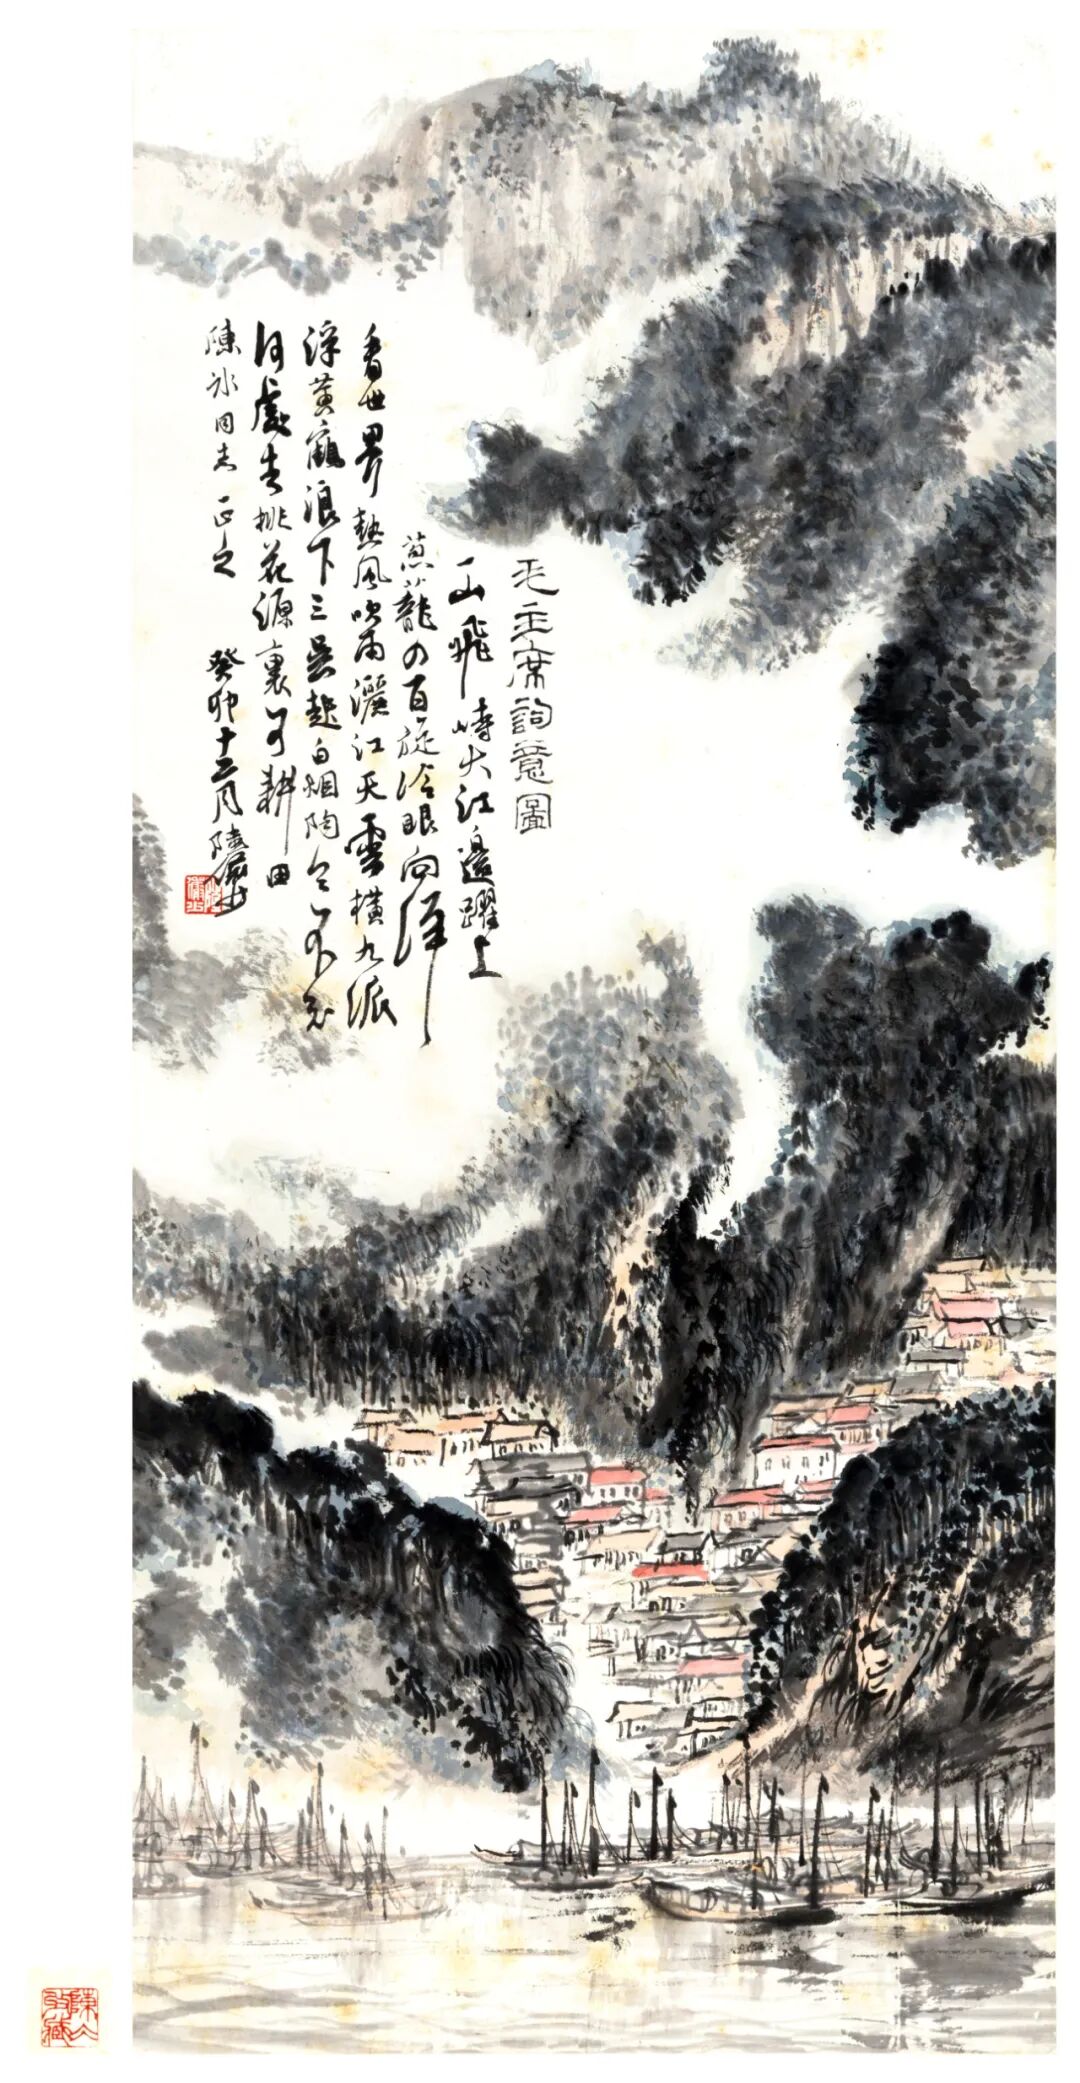 毛主席詞意圖
一山飛峙大江邊躍上
葱蘢四百旋冷眼向洋
看世界熱風吹雨灑江天雲橫九派
浮黃鶴浪下三吳起白烟陶令不知
何處去桃花源裏可耕田
陳冰同志正之 癸卯十二月陸儼少